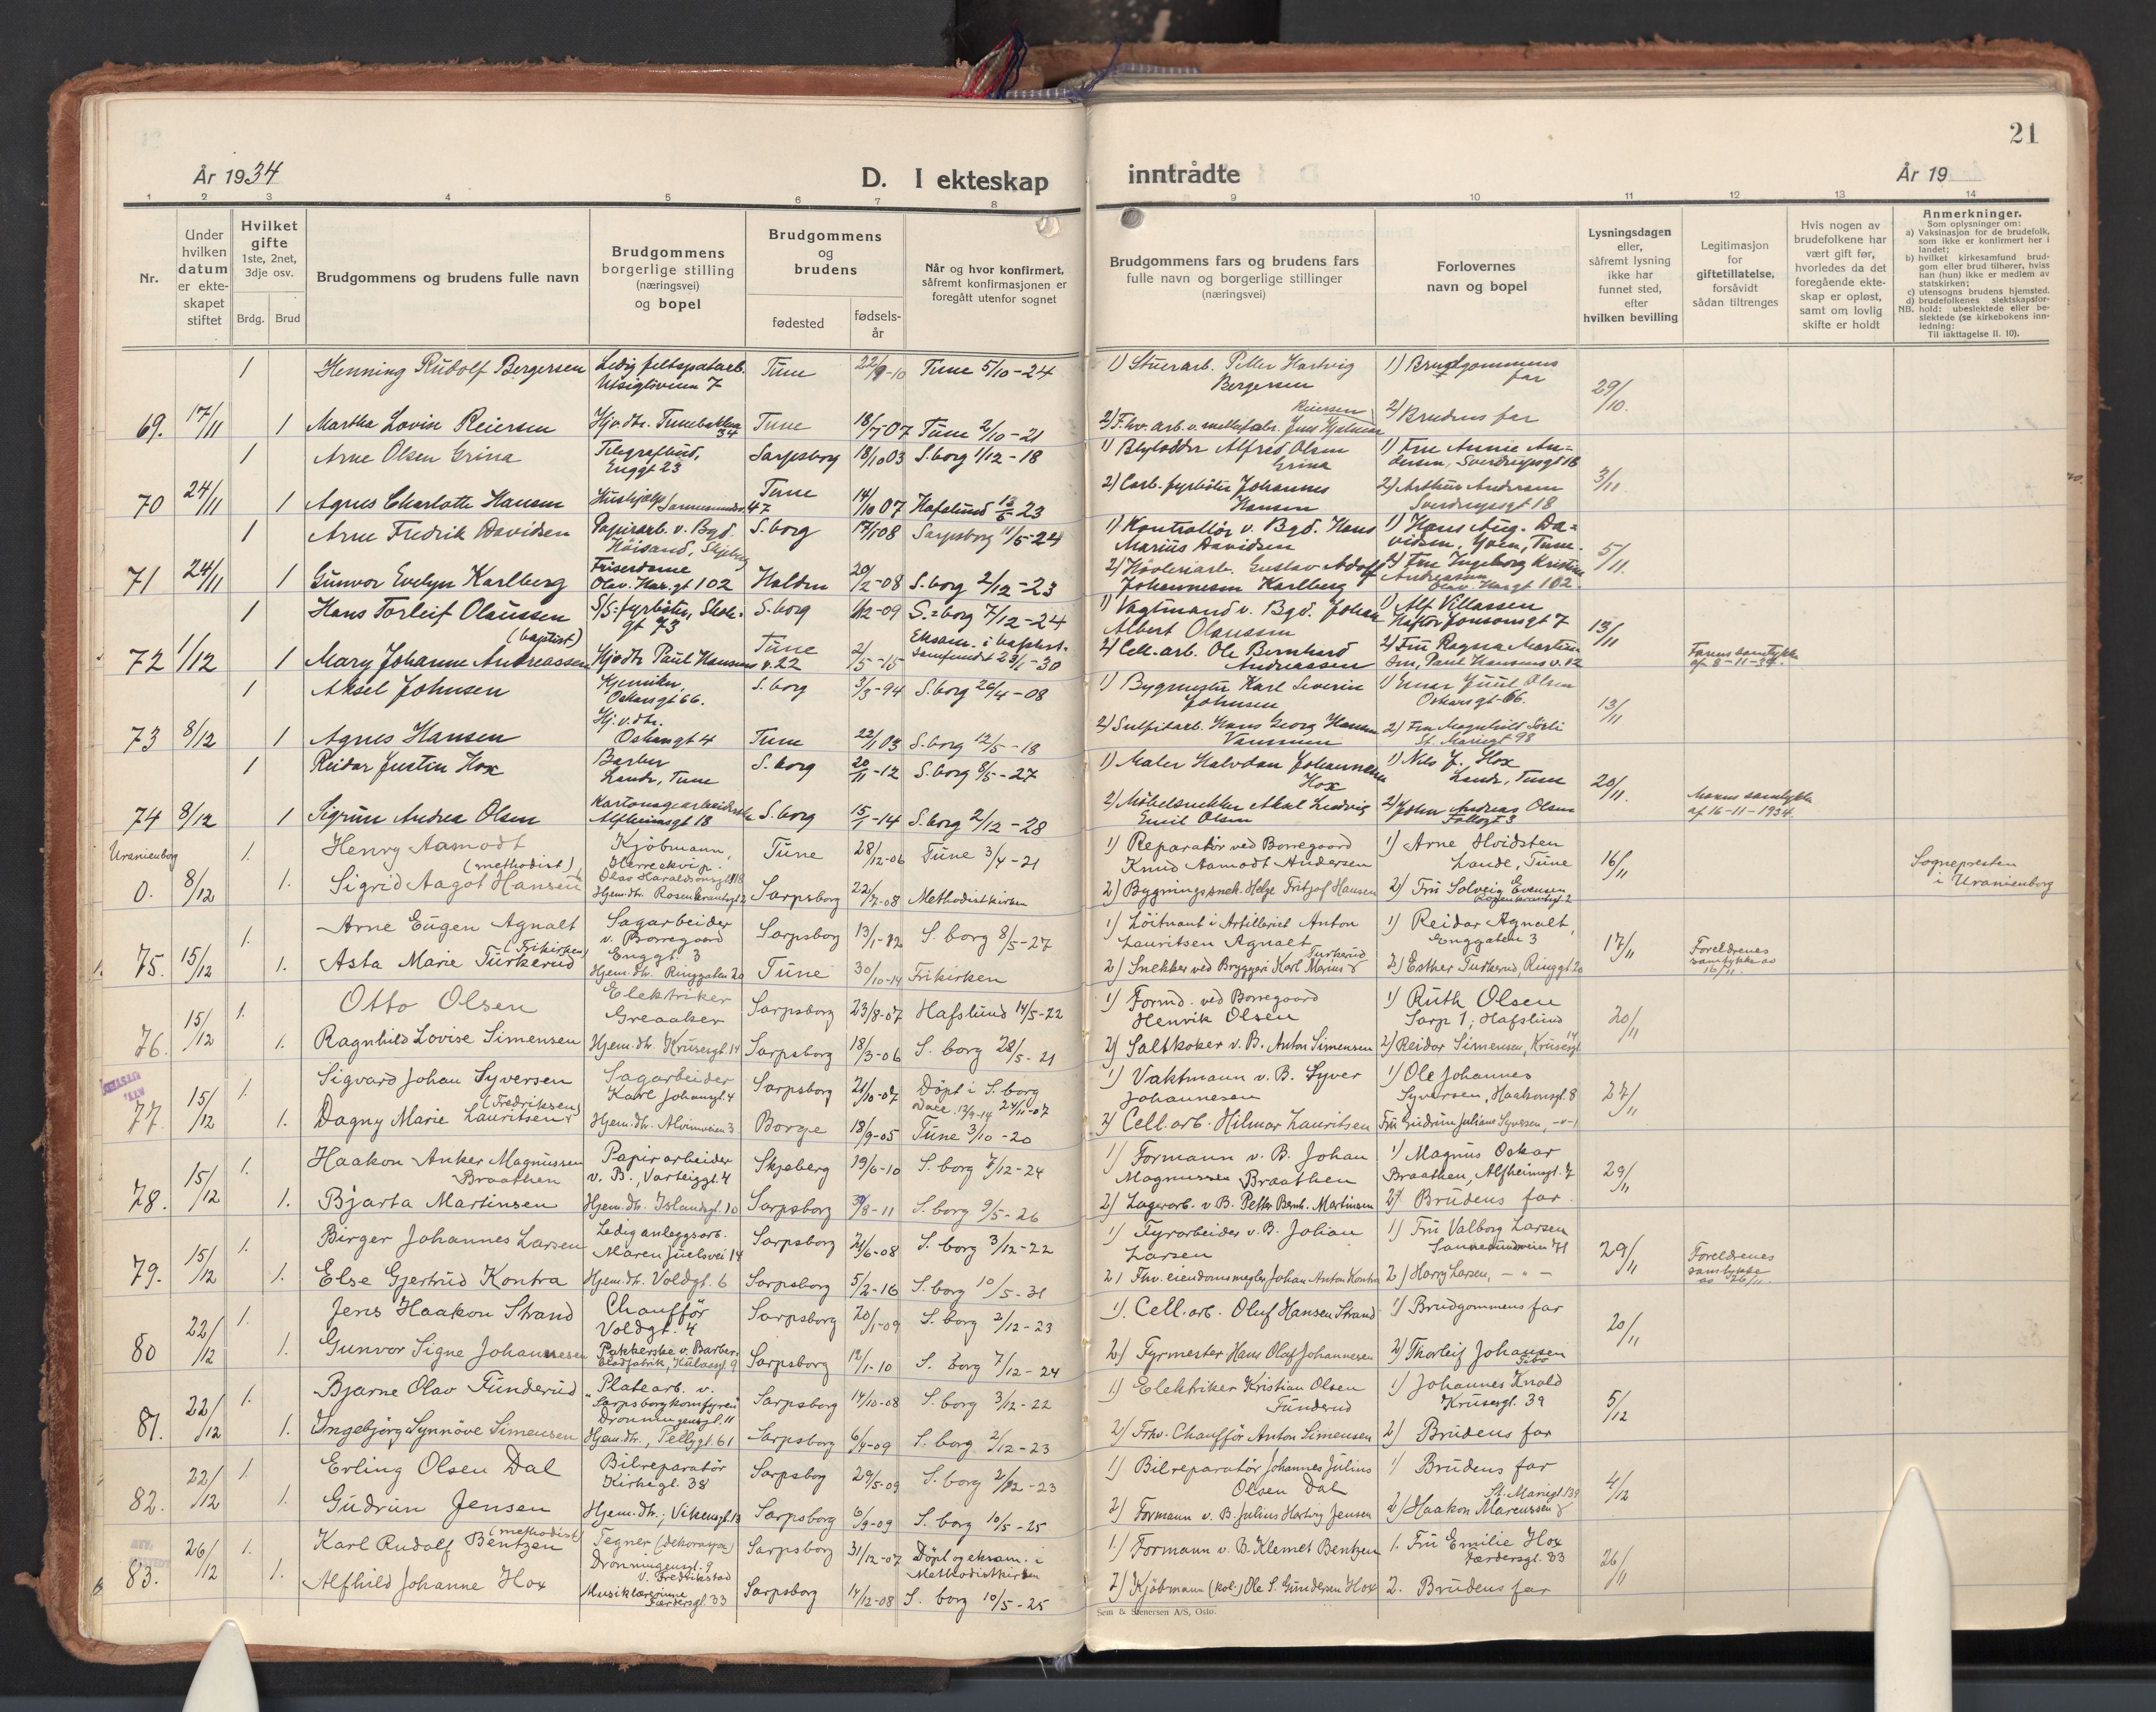 21
År 1934
D. I ekteskap
inntrådte
År 19
1 2 3 4 5 6 7 8 9 10 11 12 13 14
Nr.
Under hvilken datum er ekteskapet stiftet
Hvilket gifte 1ste, 2net, 3dje osv.
Brdg. Brud
Brudgommens og brudens fulle navn
Brudgommens borgerlige stilling (næringsvei) og bopel
Brudgommens og brudens
fødested
fødselsår
Når og hvor konfirmert, såfremt konfirmasjonen er foregått utenfor sognet
Brudgommens fars og brudens fars fulle navn og borgerlige stillinger (næringsvei)
Forlovernes navn og bopel
Lysningsdagen eller, såfremt lysning ikke har funnet sted, efter hvilken bevilling
Legitimasjon for giftetillatelse, forsåvidt sådan tiltrenges
Hvis nogen av brudefolkene har vært gift før, hvorledes da det foregående ekteskap er opløst, samt om lovlig skifte er holdt
Anmerkninger.
Som oplysninger om:
a) Vaksinasjon for de brudefolk, som ikke er konfirmert her i landet;
b) hvilket kirkesamfund brudgom eller brud tilhører, hviss han (hun) ikke er medlem av statskirken;
c) utensogns brudens hjemsted.
d) brudefolkenes slektskapsforhold: ubeslektede eller beslektede (se kirkebokens innledning:
NB.
Til iakttagelse II. 10).
1 Henning Rudolf Bergersen Ledig feltspatarb. Utsigtsveien 7 Tune 22/9-10 Tune 5/10-24 1) Stuerarb. Petter Hartvig Bergersen 1) Brudgommens far 29/10.
69. 17/11 1 Martha Lovise Reiersen Hjv.dtr. Tunebakken 34 Tune 18/7-07 Tune 2/10-21 2) F.hv. arb. Jens Hjalmar Reiersen 2) Brudens far
1 Arne Olsen Grina Telegrafbud, Enggt 23 Sarpsborg 18/10 03 S.borg 1/12-18 1) Blylodder Alfred Olsen Grina 1) Fru Annie Andersen, Sverdrupsgt 18 3/11
70 24/11 1 Agnes Charlotte Hansen Hushjelp Sannesundsv. 47 Tune 14/10 07 Hafslund 13/6-23 2) Carb. fyrbøter Johannes Hansen 2) Arthur Andersen Sverdrupsgt 18
1 Arne Fredrik Davidsen Papirarb. v. Bgd. Höisand, Skjeberg S.borg 17/1 08 Sarpsborg 11/5-24 1) Kontrollør v. Bgd. Hans Marius Davidsen 1) Hans Aug. Davidsen, Yven, Tune. 5/11
71 24/11 1 Gunvor Evelyn Karlberg Friserdame Olav Har.gt 102 Halden 20/2-08 S.borg 2/12-23 2) Høvleriarb. Gustav Adolf Johannesen Karlberg 2) Fru Ingeborg Kristine Andreassen Olav Hargt 102.
1 Hans Torleif Olaussen S/S-fyrbøter, Skolegt 73 S.borg 1/12-09 S.=borg 7/12-24 1) Vagtmand v. Bgd. Johan Albert Olaussen 1) Alf Villassen Haftor Jonsonsgt 7 13/11
72 1/12 1 Mary Johanne Andreassen (baptist) Hjv.dtr Paul Hansens v. 22 Tune 2/5-15 Eksam. i baptistsamfundet 23/1-30 2) Cell.-arb. Ole Bernhard Andreassen 2) Fru Ragna Martinsen, Paul Hansens v. 12 Farens samtykke af 8-11-34.
1 Aksel Johnsen Kjemiker, Oskarsgt 66. S.borg 3/3-94 S.borg 26/4-08 1) Bygmester Karl Severin Johnsen 1) Einar Juul Olsen Oskarsgt-66. 13/11
73 8/12 1 Agnes Hansen Hj.v.dtr. Oskarsgt 4 Tune 22/1 03 S.borg 12/5-18 2) Sulfitarb. Hans Georg Hansen 2) Fru Magnhild Sörli St. Mariegt 98
1 Reidar Justin Hox Barber Lande, Tune S.borg 20/11-12 S.borg 8/5-27 1) Maler Halvdan Johannesen Hox 1) Nils J. Hox Lande, Tune 20/11.
74 8/12 1 Sigrun Andrea Olsen Kartonagearbeiderske Alfheimsgt 18 S.borg 15/1-14 S.borg 2/12-28 2) Møbelsnekker Aksel Ludvig Emil Olsen 2) John Andreas Olsen Follogt 3 Morens samtykke af 16-11-1934.
Uranienborg 1. Henry Aamodt Kjöbmann, Herreekvip. Olav Haraldsonsgt 118 Tune 28/12-06 Tune 3/4-21 1) Reparatör ved Borregaard Knud Aamodt Andersen 1) Arne Hvidsten Lande, Tune 16/11 Sognepresten i Uranienborg
0. 8/12 1. Sigrid Aagot Hansen (methodist) Hjem.dtr. Rosenkrantzgt 2 Sarpsborg 22/7-08 Methodistkirken 2) Bygningssnek. Helge Fritjof Hansen 2) Fru Solveig Evensen Rosenkrantzgt. 2
1. Arne Eugen Agnalt Sagarbeider v. Borregaard Enggt. 3 Sarpsborg 13/1-12 S. borg 8/5-27 1) Löitnant i Artilleriet Anton Lauritsen Agnalt 1) Reidar Agnalt, Enggaten 3 17/11
75. 15/12 1. Asta Marie Turkerud (Frikirken) Hjem.dtr. Ringgaten 20 Tune 30/10-14 Frikirken 2) Snekker ved Bryggeri Karl Marius Turkerud 2) Esther Turkerud, Ringgt 20 Foreldrenes samtykke av 16/11.
1. Otto Olsen Elektriker Greaaker Sarpsborg 23/8-07 Hafslund 14/5-22 1) Formd. ved Borregaard Henrik Olsen 1) Ruth Olsen Sarp 1, Hafslund 20/11
76. 15/12 1. Ragnhild Lovise Simensen Hjem.dtr. Krusesgt. 14 Sarpsborg 18/3-06 S. borg 28/5-21 2) Saltkoker v. B. Anton Simensen 2) Reidar Simensen, Krusesgt 14
1. Sigvard Johan Syversen Sagarbeider Karl Johansgt. 4 Sarpsborg 21/10-07 Döpt i S. borg 24/11-07 1) Vaktmann v. B. Syver Johannesen 1) Ole Johannes Syversen, Haakonsgt. 8 27/11
77. 15/12 1. Dagny Marie Lauritsen (Fredriksen) Hjem.dtr. Alvimveien 3 Borge 18/9-05 Tune 3/10-20 2) Cell. arb. Hilmar Lauritsen Fru Gudrun Juliane Syversen, -"-
1. Haakon Anker Magnussen Braathen Papirarbeider v. B., Varteiggt. 4 Skjeberg 19/6-10 S. borg 7/12-24 1) Formann v. B. Johan Magnussen Braathen 1) Magnus Oskar Braathen, Alfheimsgt. 7 29/11
78. 15/12 1. Bjarta Martinsen Hjem.dtr. Islandsgt. 10 Sarpsborg 30/8-11 S. borg 9/5-26 2) Lagerarb. v B. Petter Bernh. Martinsen 2) Brudens far
1. Birger Johannes Larsen Ledig anleggsarb. Maren Juelsvei 14 Sarpsborg 21/6-08 S. borg 3/12-22 1) Fyrarbeider v. B. Johan Larsen 1) Fru Valborg Larsen Sannesundveien 71 29/11
79. 15/12 1. Else Gjertrud Kontra Hjem.dtr. Voldgt. 6 Sarpsborg 5/2-16 S. borg 10/5-31 2) Fhv. eiendomsmegler Johan Anton Kontra 2) Harry Larsen, -"- Foreldrenes samtykke av 26/11.
1. Jens Haakon Strand Chafför Voldgt. 4 Sarpsborg 20/1-09 S. borg 2/12-23 1). Cell. arb. Oluf Hansen Strand 1) Brudgommens far 20/11
80 22/12 1. Gunvor Signe Johannesen Pakkerske v. Barberbladfabrik, Kulaasgt. 9 Sarpsborg 12/1-10 S. borg 7/12-24 2) Fyrmester Hans Olaf Johannesen 2) Thorleif Johansen
1. Bjarne Olav Tunderud Platearb. v. "Sarpsborgkomfyren" Dronningensgt. 11 Sarpsborg 14/10-08 S. borg 3/12-22 1) Elektriker Kristian Olsen Tunderud 1) Johannes Knold Krusesgt. 39 5/12
81. 22/12 1. Ingebjörg Synnöve Simensen Hjem.dtr., Pellygt. 61 Sarpsborg 6/4-09 S. borg 2/12-23 2) Frhv. Chafför Anton Simensen 2) Brudens far
1. Erling Olsen Dal Bilreparatör Kirkegt. 38 Sarpsborg 29/5-09 S. borg 2/12-23 1) Bilreparatör Johannes Julius Olsen Dal 1) Brudens far 4/12
82. 22/12 1. Gudrun Jensen Hjem.dtr., Vikensgt. 13 Sarpsborg 6/9-09 S. borg 10/5-25 2) Formann v. B. Julius Hartvig Jensen 2) Haakon Marcussen St. Mariegt. 139
1. Karl Rudolf Bentzen (methodist) Tegner (dekorasjon) Dronningensgt. 9 Sarpsborg 31/12-07 Döpt og eksam. i Methodistkirken 1.) Formann v. B. Klemet Bentzen 1. Fru Emilie Hox Færdersgt. 33 26/11
83. 26/12 1. Alfhild Johanne Hox Musiklærerinne v. Fredrikstad Færdersgt. 33 Sarpsborg 14/12-08 S. borg 10/5-25 2) Kjöbmann (kol.) Ole S. Gundersen Hox 2. Brudens far
Sem & Stenersen A/S, Oslo.